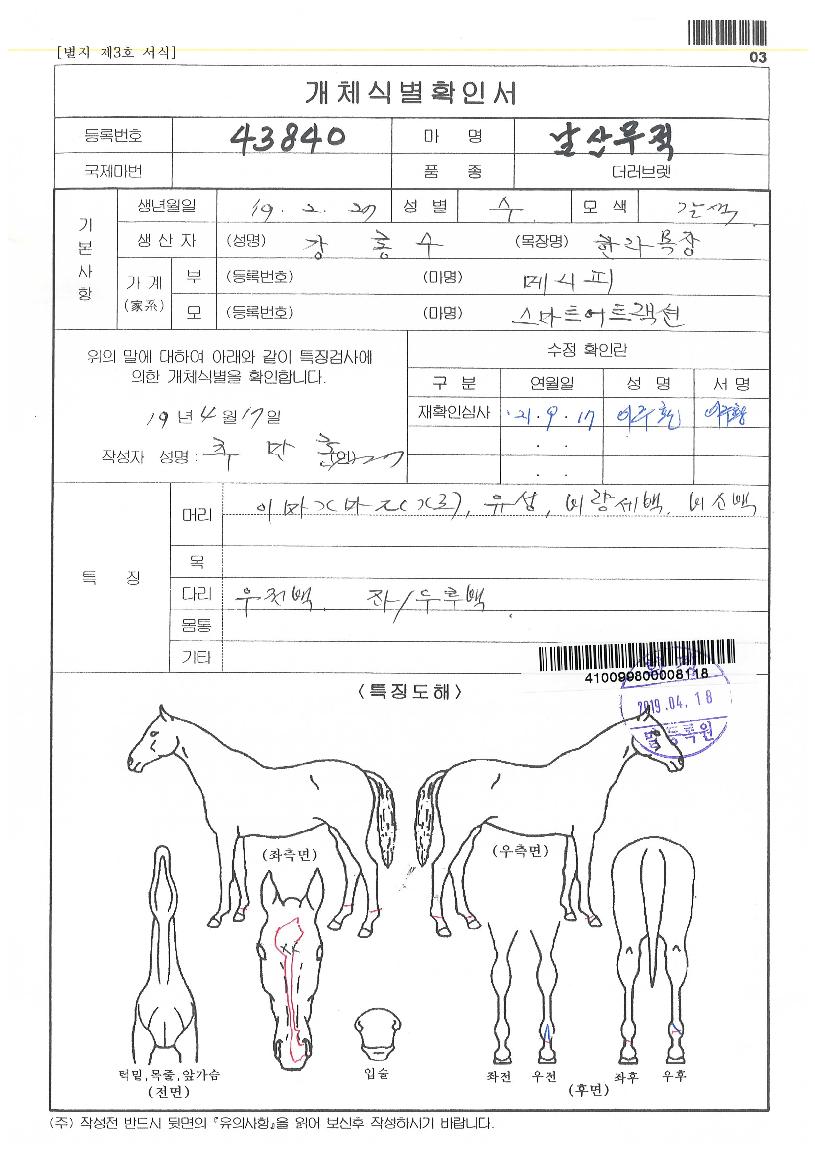 [별지 제3호 서식]
03
개체식별확인서
등록번호 43840 마 명 날산무적
국제마번 품 종 더러브렛
기본사항
생년월일 19. 2. 27 성 별 수 모 색 갈색
생 산 자 (성명) 강 홍 수 (목장명) 한라목장
가 계 (家系) 부 (등록번호) (마명) 메시피
모 (등록번호) (마명) 스마트어트랙션
위의 말에 대하여 아래와 같이 특징검사에
의한 개체식별을 확인합니다.
19 년 4 월 17 일
작성자 성명 :
수정 확인란
구 분 연월일 성 명 서 명
재확인심사 '21. 9. 17
특 징
머리 유성, 비량세백, 비소백
목
다리 우전백
몸통
기타
410099800008118
<특징도해>
2019.04.18
말등록원
(좌측면) (우측면)
턱밑,목줄,앞가슴
(전면)
입술
좌전 우전 좌후 우후
(후면)
(주) 작성전 반드시 뒷면의 『유의사항』을 읽어 보신후 작성하시기 바랍니다.